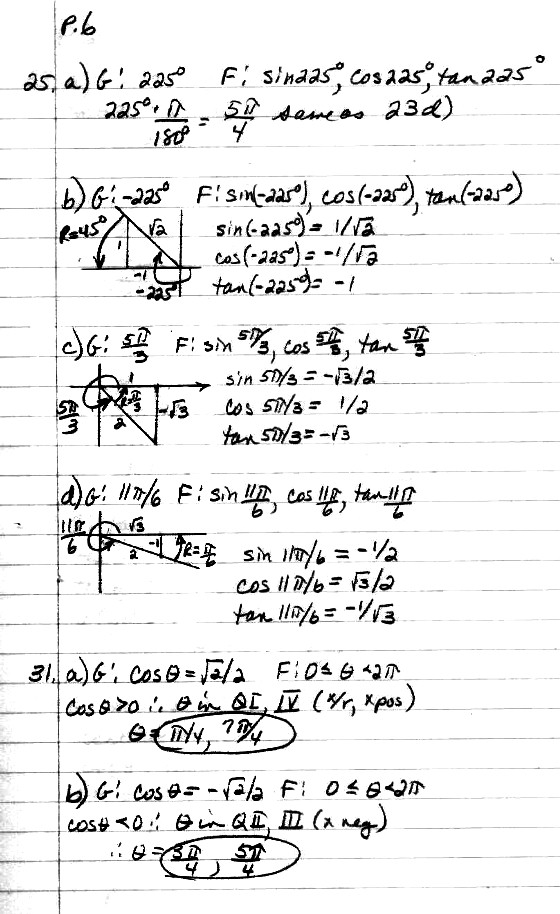 P.6
25. a) G: 225° F: sin225°, cos225°, tan225°
225° · π/180° = 5π/4 same as 23d)
b) G: -225° F: sin(-225°), cos(-225°), tan(-225°)
R=45° 1 √2 sin(-225°) = 1/√2
cos(-225°) = -1/√2
-1 -225° tan(-225°) = -1
c) G: 5π/3 F: sin 5π/3, cos 5π/3, tan 5π/3
1 sin 5π/3 = -√3/2
5π/3 R=π/3 2 -√3 cos 5π/3 = 1/2
tan 5π/3 = -√3
d) G: 11π/6 F: sin 11π/6, cos 11π/6, tan 11π/6
11π/6 √3 2 -1 R=π/6 sin 11π/6 = -1/2
cos 11π/6 = √3/2
tan 11π/6 = -1/√3
31. a) G: cosθ = √2/2 F: 0 ≤ θ < 2π
cosθ > 0 ∴ θ in QI, IV (x/r, x pos)
θ = π/4, 7π/4
b) G: cosθ = -√2/2 F: 0 ≤ θ < 2π
cosθ < 0 ∴ θ in QII, III (x neg)
∴ θ = 3π/4, 5π/4